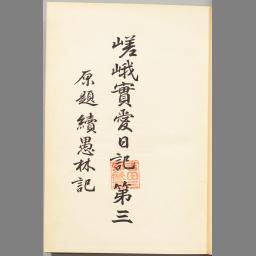 嵯峨實愛日記 第三
原題 續愚林記